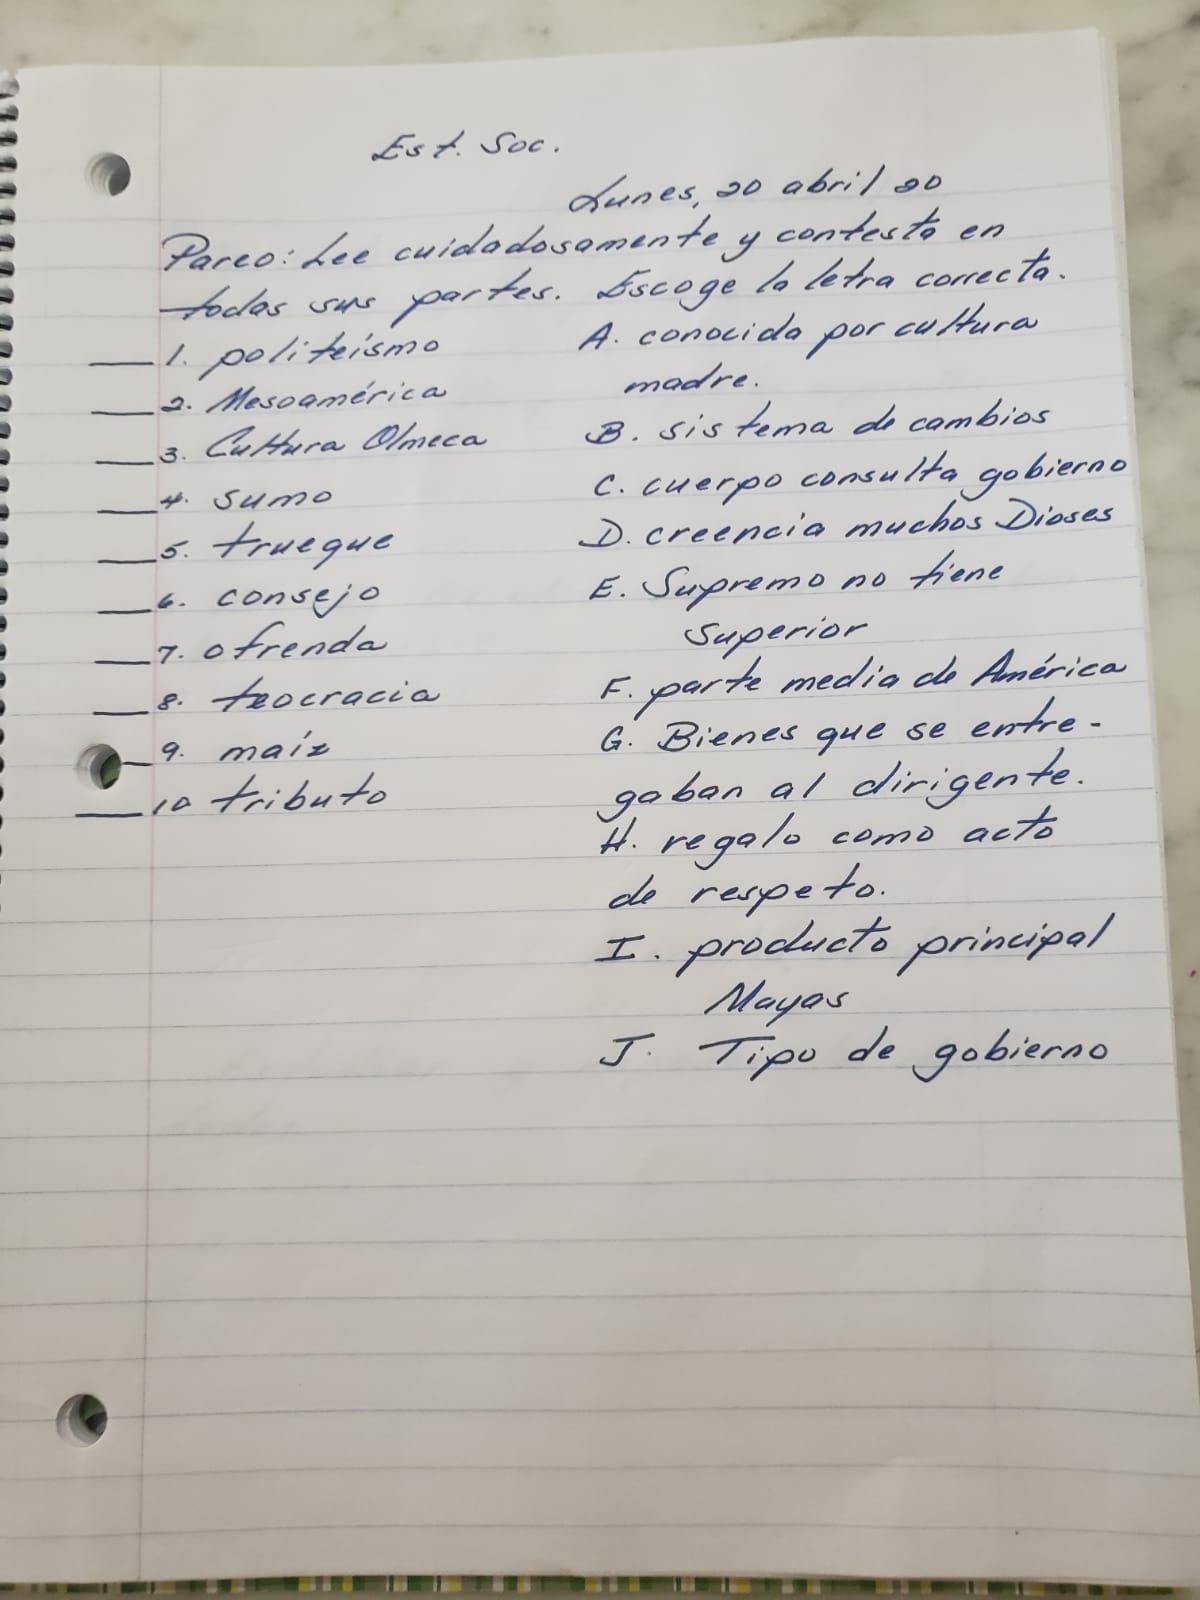 Est. Soc.
Lunes, 20 abril 20
Pareo: Lee cuidadosamente y contesta en
todas sus partes. Escoge la letra correcta.
___ 1. politeísmo
___ 2. Mesoamérica
___ 3. Cultura Olmeca
___ 4. sumo
___ 5. trueque
___ 6. consejo
___ 7. ofrenda
___ 8. teocracia
___ 9. maíz
___ 10 tributo
A. conocida por cultura
madre.
B. sistema de cambios
C. cuerpo consulta gobierno
D. creencia muchos Dioses
E. Supremo no tiene
Superior
F. parte media de América
G. Bienes que se entre-
gaban al dirigente.
H. regalo como acto
de respeto.
I. producto principal
Mayas
J. Tipo de gobierno